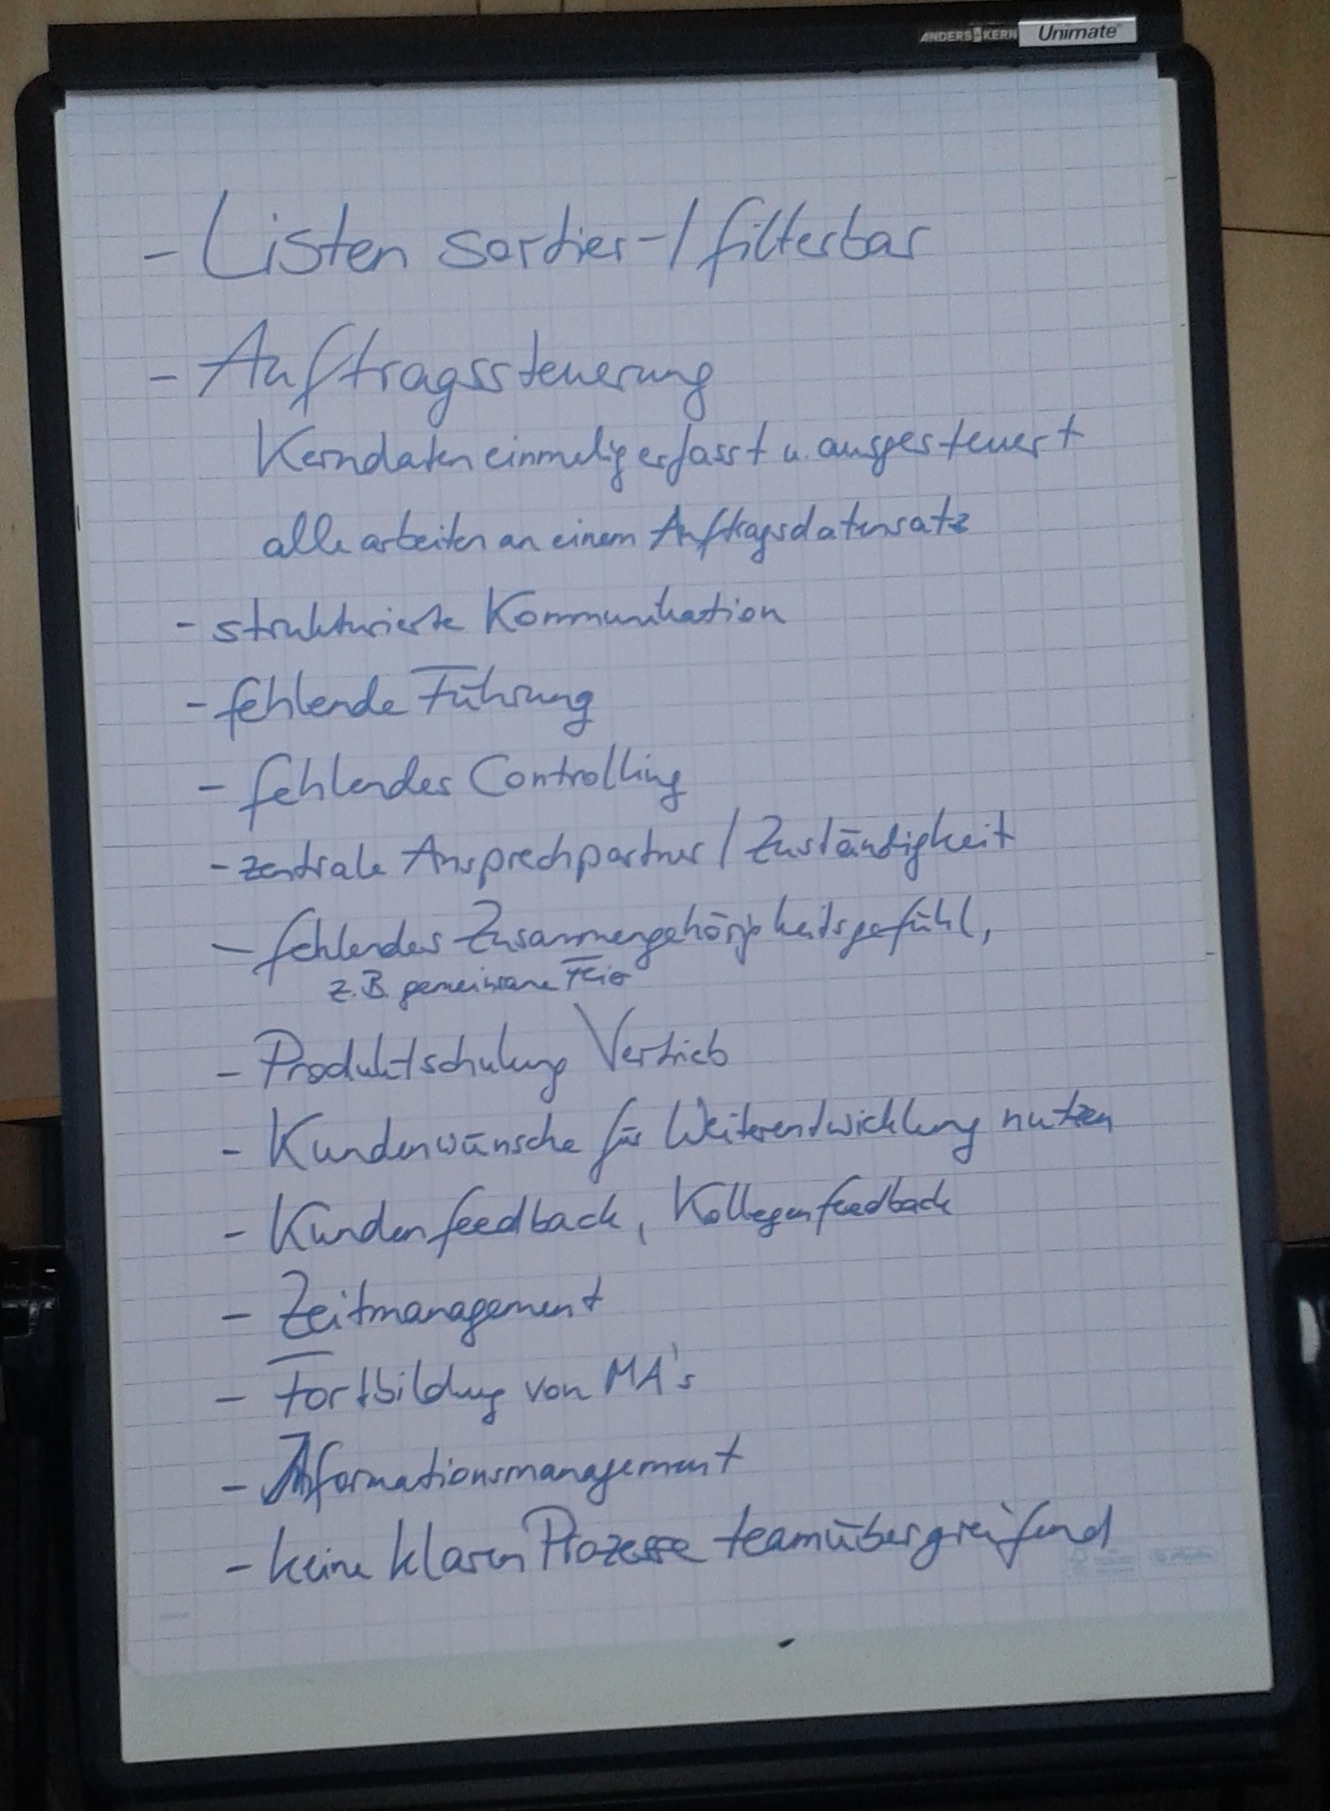 ANDERS & KERN Unimate
- Listen sortier-/filterbar
- Auftragssteuerung
Kerndaten einmalig erfasst u. ausgesteuert
alle arbeiten an einem Auftragsdatensatz
- strukturierte Kommunikation
- fehlende Führung
- fehlendes Controlling
- zentrale Ansprechpartner / Zuständigkeit
- fehlendes Zusammengehörigkeitsgefühl,
z.B. gemeinsame Feier
- Produktschulung Vertrieb
- Kundenwünsche für Weiterentwicklung nutzen
- Kundenfeedback, Kollegenfeedback
- Zeitmanagement
- Fortbildung von MA's
- Informationsmanagement
- keine klaren Prozesse teamübergreifend